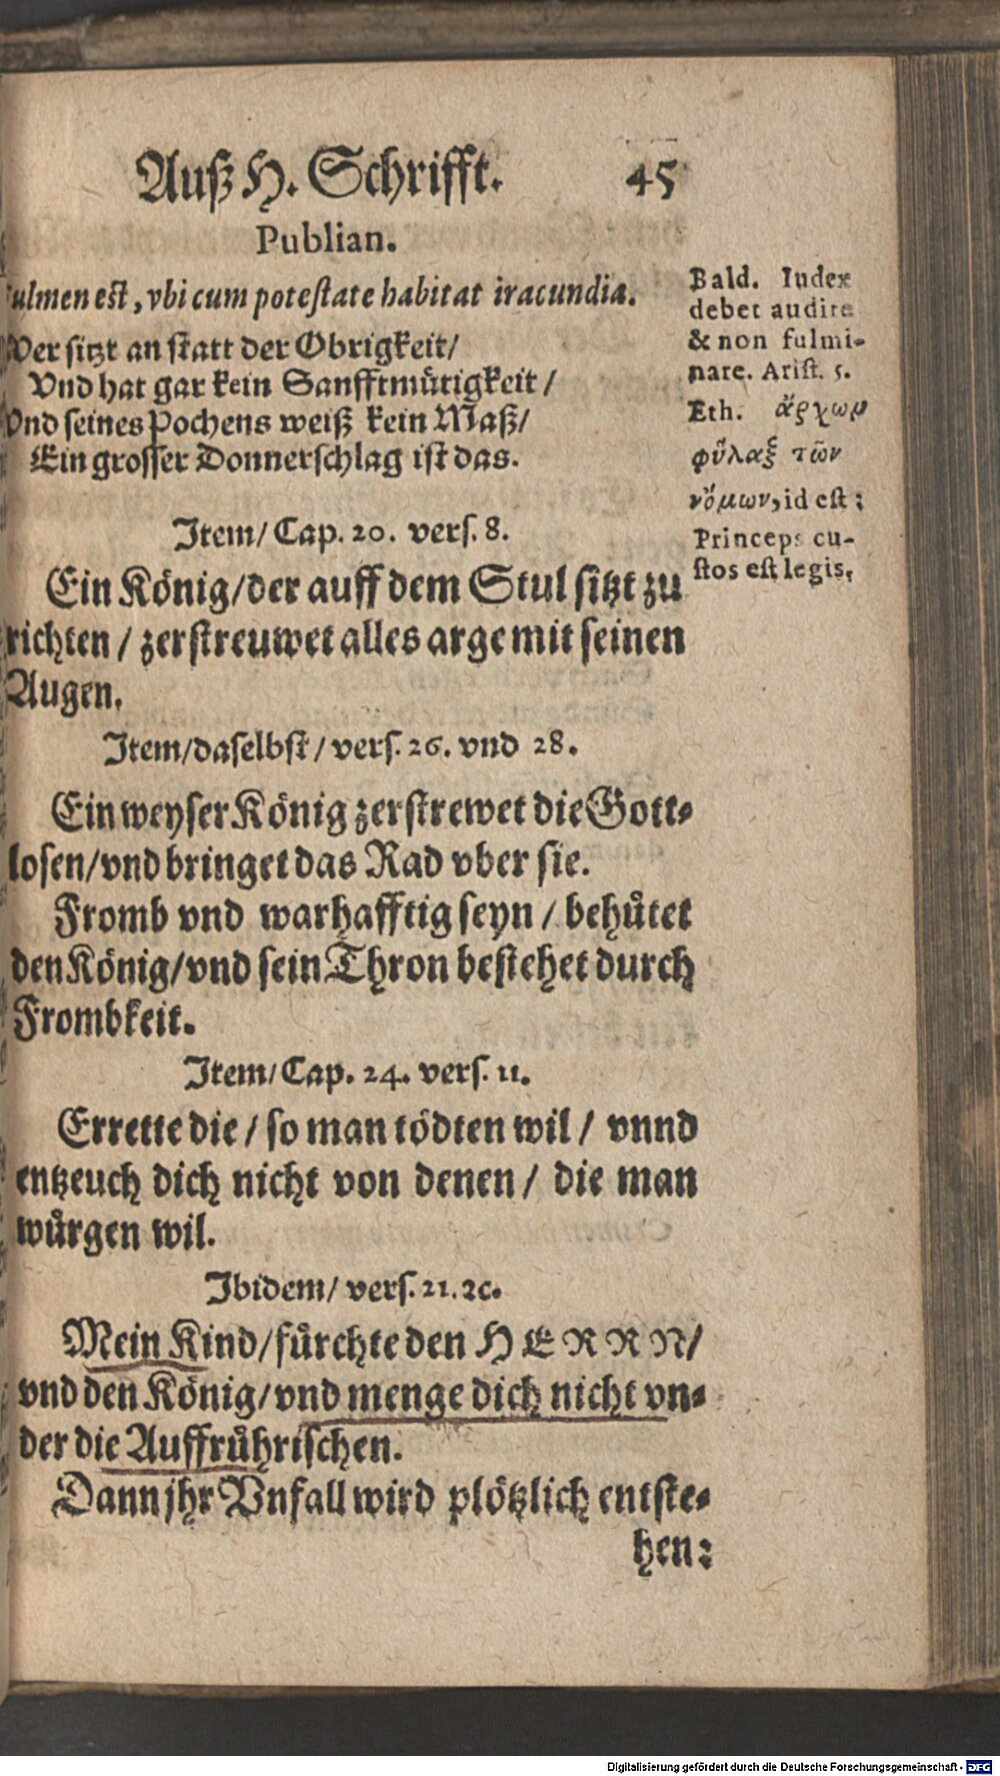 Auß H. Schrifft. 45
Publian.
Fulmen est, vbi cum potestate habitat iracundia.
Wer sitzt an statt der Obrigkeit/
Vnd hat gar kein Sanfftmuͤtigkeit/
Vnd seines Pochens weiß kein Maß/
Ein grosser Donnerschlag ist das.
Bald. Iudex
debet audire
& non fulmi-
nare. Arist. 5.
Eth. ἄρχων
φύλαξ τῶν
νόμων, id est:
Princeps cu-
stos est legis.
Item/ Cap. 20. vers. 8.
Ein Koͤnig/ der auff dem Stul sitzt zu
richten/ zerstreuwet alles arge mit seinen
Augen.
Item/ daselbst/ vers. 26. vnd 28.
Ein weyser Koͤnig zerstrewet die Gott-
losen/ vnd bringet das Rad vber sie.
Fromb vnd warhafftig seyn/ behuͤtet
den Koͤnig/ vnd sein Thron bestehet durch
Frombkeit.
Item/ Cap. 24. vers. 11.
Errette die/ so man toͤdten wil/ vnnd
entzeuch dich nicht von denen/ die man
wuͤrgen wil.
Ibidem/ vers. 21. 2c.
Mein Kind/ fuͤrchte den HERRN/
vnd den Koͤnig/ vnd menge dich nicht vn-
der die Auffruͤhrischen.
Dann jhr Vnfall wird ploͤtzlich entste-
hen:
Digitalisierung gefördert durch die Deutsche Forschungsgemeinschaft - DFG